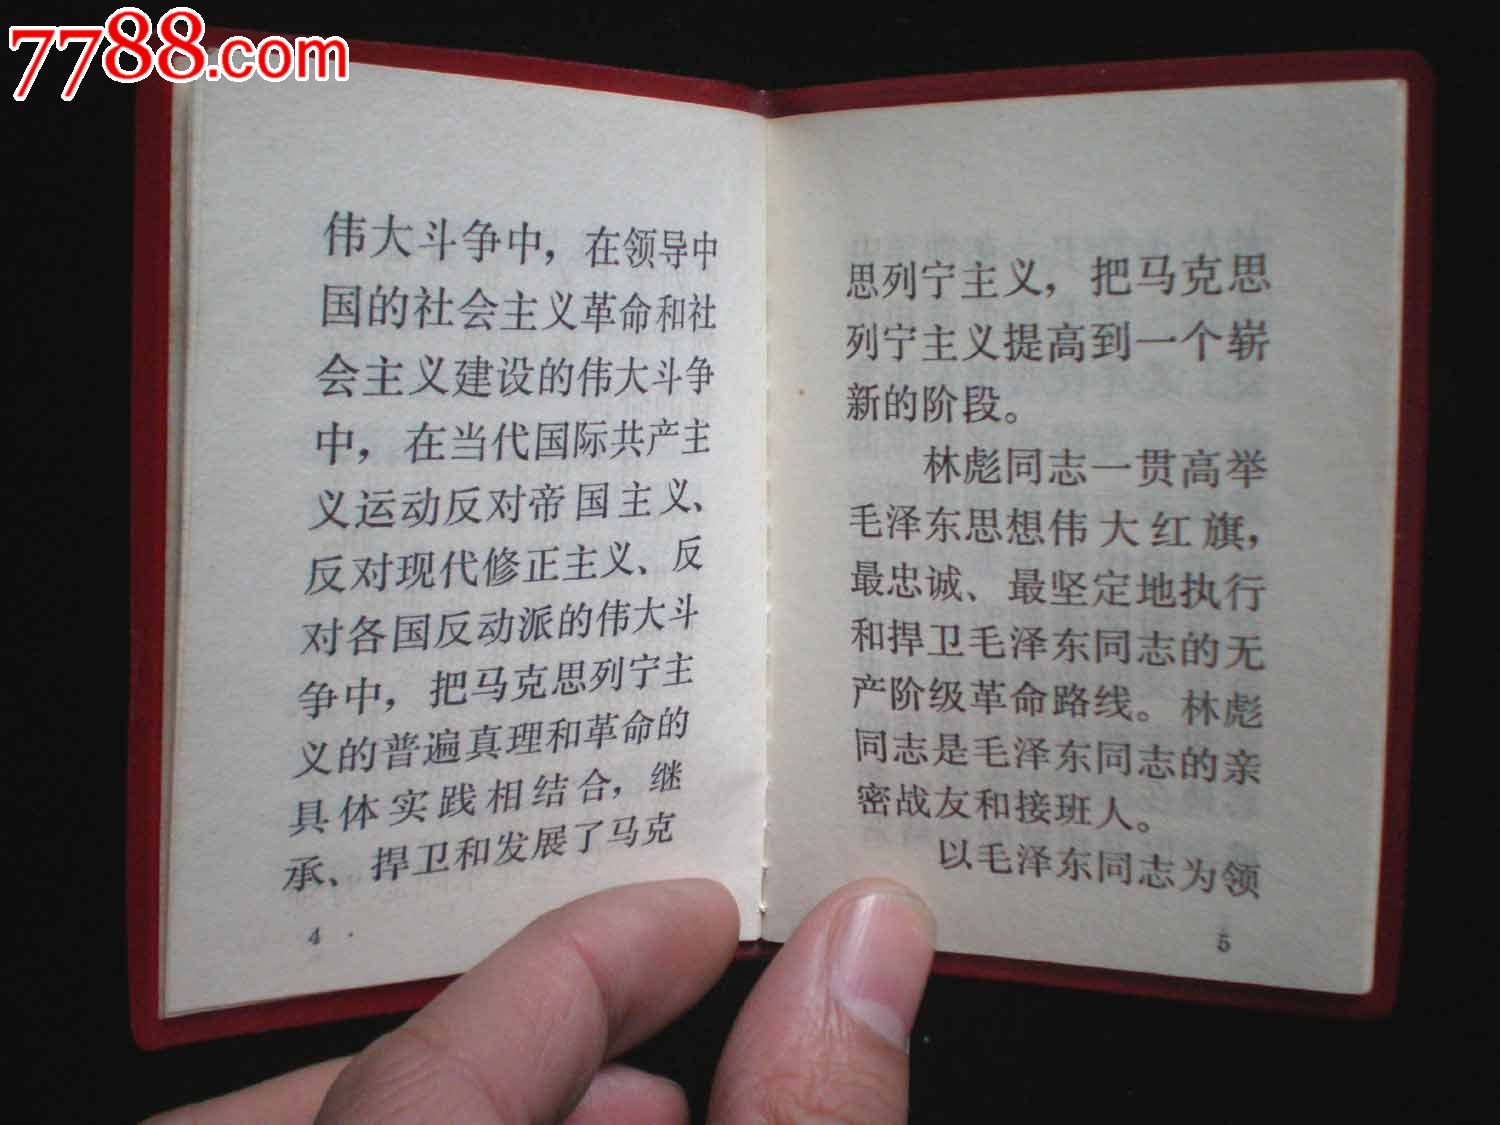 7788.com
伟大斗争中，在领导中
国的社会主义革命和社
会主义建设的伟大斗争
中，在当代国际共产主
义运动反对帝国主义、
反对现代修正主义、反
对各国反动派的伟大斗
争中，把马克思列宁主
义的普遍真理和革命的
具体实践相结合，继
承、捍卫和发展了马克
4
思列宁主义，把马克思
列宁主义提高到一个崭
新的阶段。
林彪同志一贯高举
毛泽东思想伟大红旗，
最忠诚、最坚定地执行
和捍卫毛泽东同志的无
产阶级革命路线。林彪
同志是毛泽东同志的亲
密战友和接班人。
以毛泽东同志为领
5